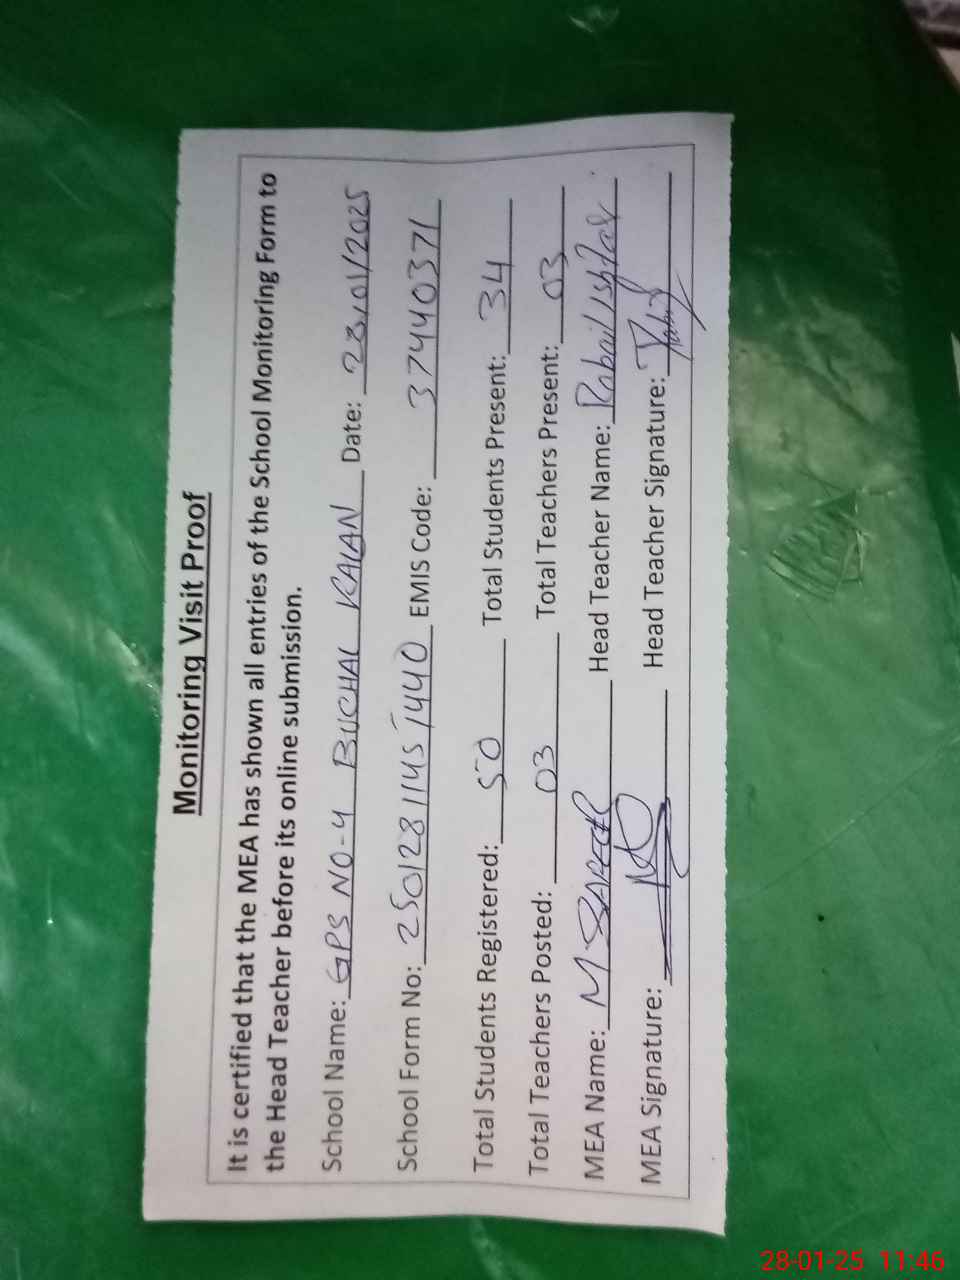 Monitoring Visit Proof
It is certified that the MEA has shown all entries of the School Monitoring Form to
the Head Teacher before its online submission.
School Name: GPS NO-4 BUCHAL KALAN Date: 28/01/2025
School Form No: 25012811457440 EMIS Code: 37440371
Total Students Registered: 50 Total Students Present: 34
Total Teachers Posted: 03 Total Teachers Present: 03
MEA Name: M Head Teacher Name: Rabail Ishfaq
MEA Signature: Head Teacher Signature:
28-01-25 11:46